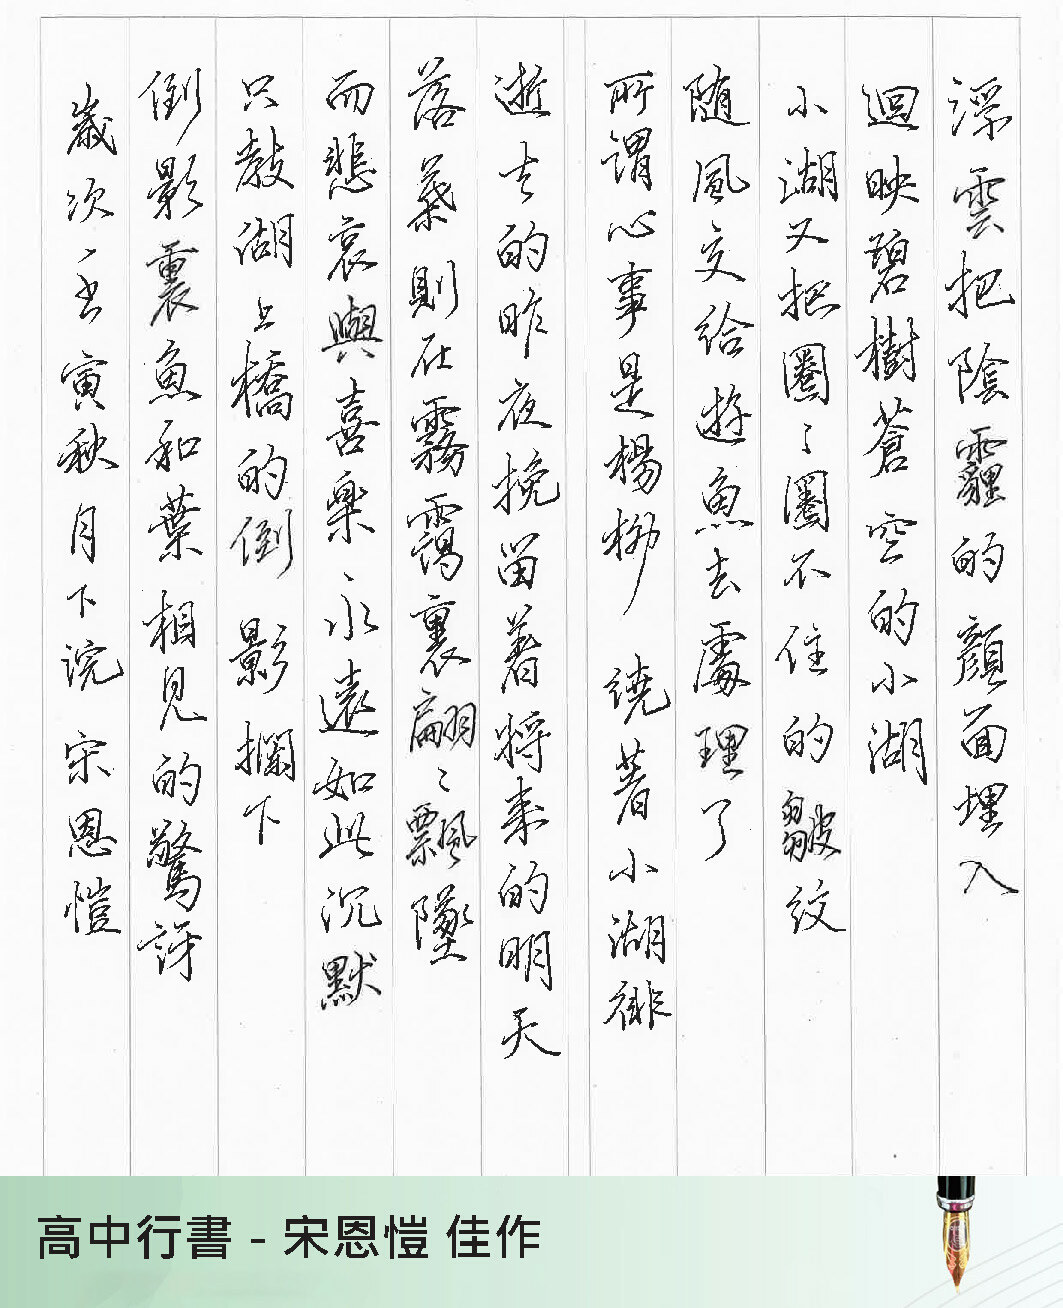 浮雲把陰霾的顏面埋入
迴映碧樹蒼空的小湖
小湖又把圈〻圈不住的皺紋
隨風交給游魚去處理了
所謂心事是楊柳繞著小湖徘
逝去的昨夜挽留著將來的明天
落葉則在霧靄裏翩〻飄墜
而悲哀與喜樂永遠如此沉默
只教湖上橋的倒影擱下
倒影裏魚和葉相見的驚訝
歲次壬寅秋月下浣宋恩愷
高中行書 - 宋恩愷 佳作